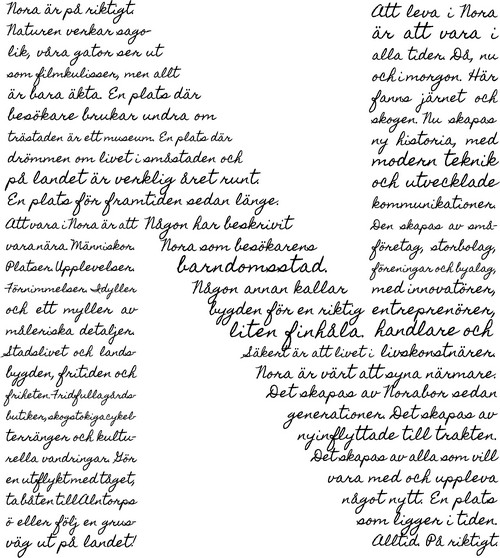 Nora är på riktigt.
Naturen verkar sago-
lik, våra gator ser ut
som filmkulisser, men allt
är bara äkta. En plats där
besökare brukar undra om
trästaden är ett museum. En plats där
drömmen om livet i småstaden och
på landet är verklig året runt.
En plats för framtiden sedan länge.
Att vara i Nora är att
vara nära. Människor.
Platser. Upplevelser.
Förnimmelser. Idyller
och ett myller av
måleriska detaljer.
Stadslivet och lands-
bygden, fritiden och
friheten. Fridfulla gårds-
butiker, skogstokiga cykel-
terränger och kultu-
rella vandringar. Gör
en utflykt med tåget,
ta båten till Alntorps
ö eller följ en grus-
väg ut på landet!
Någon har beskrivit
Nora som besökarens
barndomsstad.
Någon annan kallar
bygden för en riktig
liten finhåla.
Att leva i Nora
är att vara i
alla tider. Då, nu
och i morgon. Här
fanns järnet och
skogen. Nu skapas
ny historia, med
modern teknik
och utvecklade
kommunikationer.
Den skapas av små-
företag, storbolag,
föreningar och byalag,
med innovatörer,
entreprenörer,
handlare och
livskonstnärer.
Säkert är att livet i
Nora är värt att syna närmare.
Det skapas av Norabor sedan
generationer. Det skapas av
nyinflyttade till trakten.
Det skapas av alla som vill
vara med och uppleva
något nytt. En plats
som ligger i tiden.
Alltid. På riktigt.